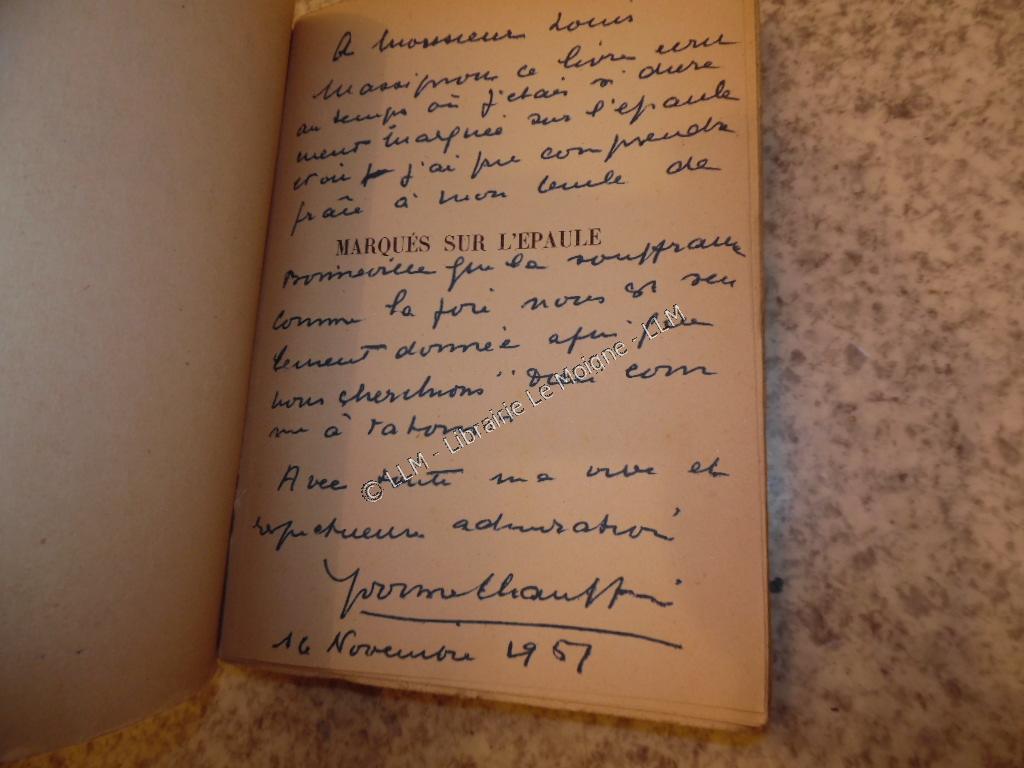 A Monsieur Louis
Massignon ce livre
au temps où j'étais si dure
ment marquée sur l'épaule
et où j'ai pu comprendre
à mon de
MARQUÉS SUR L'EPAULE
Bonneville que la souffrance
comme la joie nous est seu
lement donnée afin que
nous cherchions " Dieu com
me à
Avec toute ma vive et
respectueuse admiration
Yvonne Chauffin
16 Novembre 1951
© LLM - Librairie Le Moigne - LLM